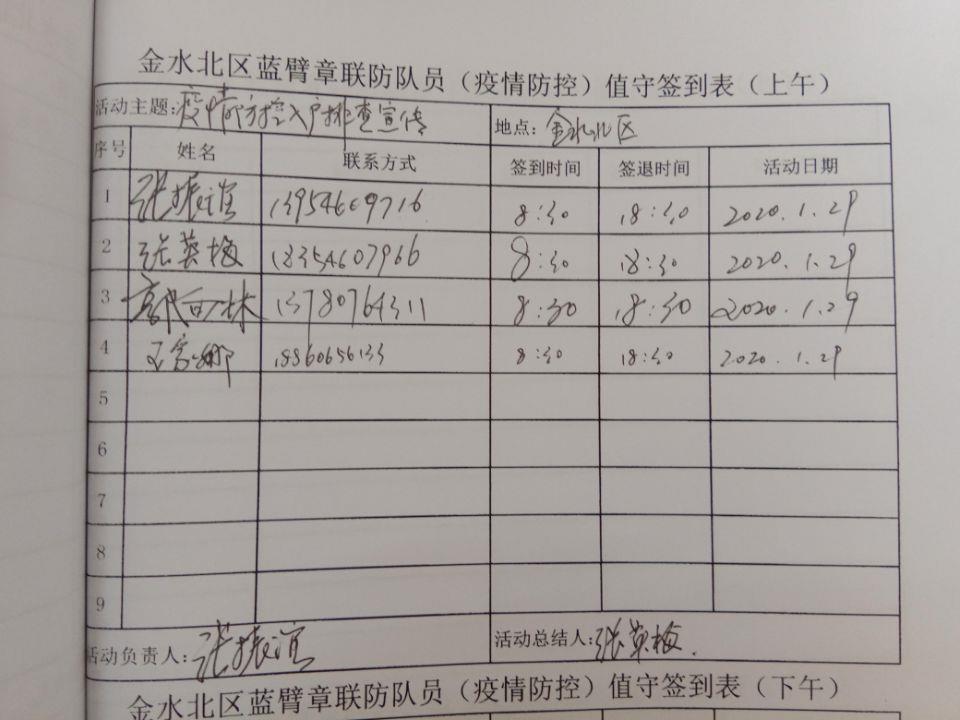 金水北区蓝臂章联防队员（疫情防控）值守签到表（上午）
活动主题:疫情防控入户排查宣传 地点: 金水北区
序号 姓名 联系方式 签到时间 签退时间 活动日期
1 张振谊 13954609716 8:30 18:30 2020.1.29
2 张英梅 18354607966 8:30 18:30 2020.1.29
3 13780764311 8:30 18:30 2020.1.29
4 18860656133 8:30 18:30 2020.1.29
5
6
7
8
9
活动负责人: 张振谊 活动总结人: 张英梅.
金水北区蓝臂章联防队员（疫情防控）值守签到表（下午）